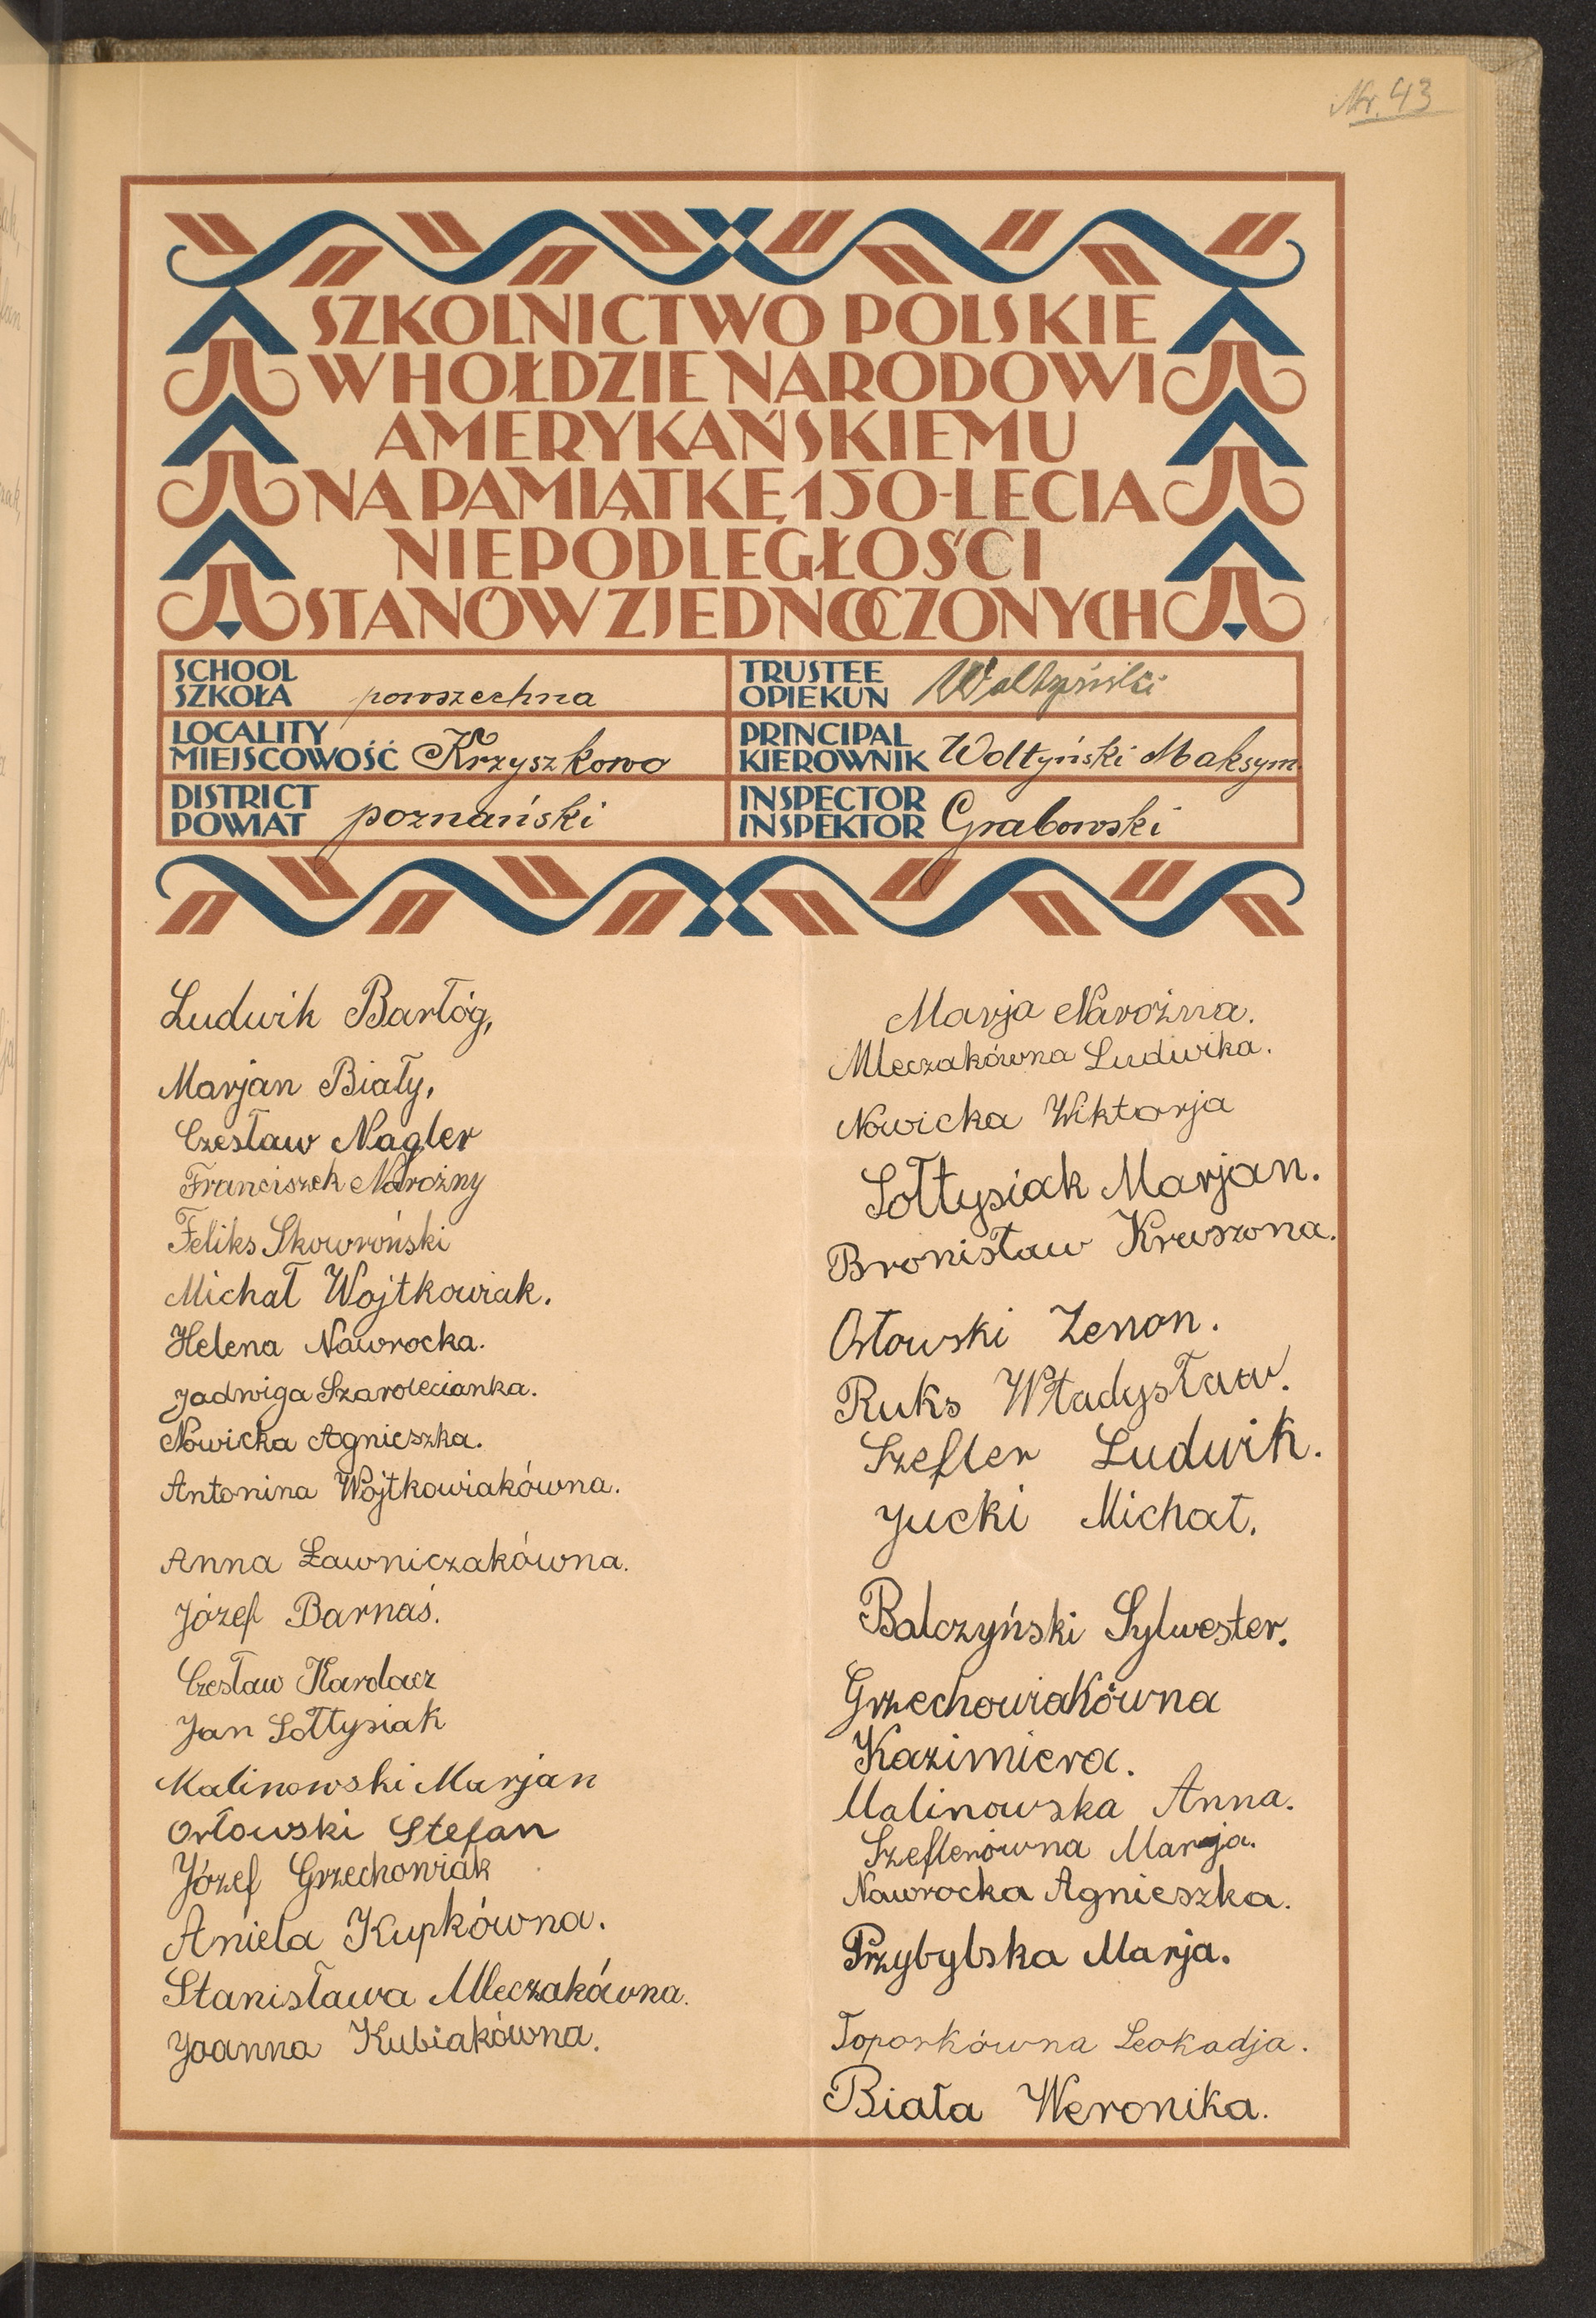 Nr. 43
SZKOLNICTWO POLSKIE
W HOŁDZIE NARODOWI
AMERYKAŃSKIEMU
NA PAMIĄTKĘ 150-LECIA
NIEPODLEGŁOŚCI
STANÓW ZJEDNOCZONYCH
SCHOOL
SZKOŁA powszechna
TRUSTEE
OPIEKUN Wołtyński
LOCALITY
MIEJSCOWOŚĆ Krzyszkowo
PRINCIPAL
KIEROWNIK Wołtyński Maksym
DISTRICT
POWIAT poznański
INSPECTOR
INSPEKTOR Grabowski
Ludwik Bartóg,
Marjan Biały,
Czesław Nagler
Franciszek Narożny
Feliks Skowroński
Michał Wojtkowiak.
Helena Nawrocka.
Jadwiga Szarolecianka.
Nowicka Agnieszka.
Antonina Wojtkowiakówna.
Anna Ławniczakówna.
Józef Barnaś.
Czesław Kardacz
Jan Sołtysiak
Malinowski Marjan
Orłowski Stefan
Józef Grzechowiak
Aniela Kupkówna.
Stanisława Mleczakówna.
Joanna Kubiakówna.
Marja Narożna.
Mleczakówna Ludwika.
Nowicka Wiktorja
Sołtysiak Marjan.
Bronisław Kruszona.
Orłowski Zenon.
Ruks Władysław.
Szefler Ludwik.
Jucki Michał.
Balczyński Sylwester.
Grzechowiakówna
Kazimiera.
Malinowska Anna.
Szeflerówna Marja.
Nawrocka Agnieszka.
Przybylska Marja.
Toporkówna Leokadja.
Biała Weronika.